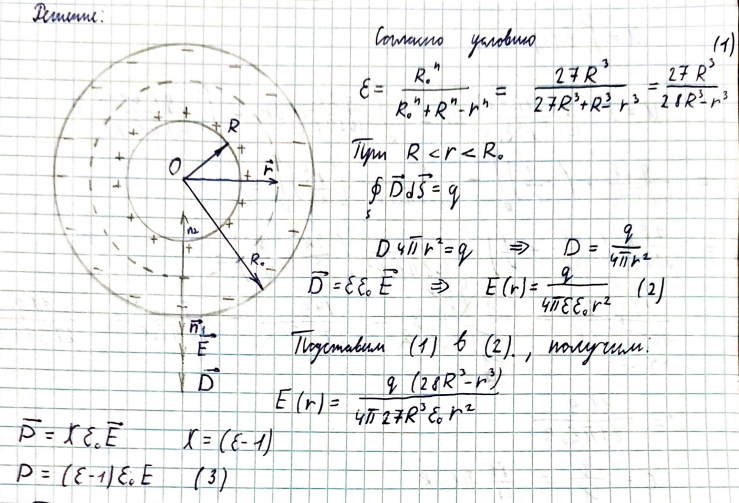 Решение:
Согласно условию (1)
ε = R₀ⁿ / (R₀ⁿ + Rⁿ - rⁿ) = 27R³ / (27R³ + R³ - r³) = 27R³ / (28R³ - r³)
При R < r < R₀
∮ₛ D⃗ dS⃗ = q
D 4πr² = q ⇒ D = q / 4πr²
D⃗ = εε₀E⃗ ⇒ E(r) = q / 4πεε₀r² (2)
Подставим (1) в (2)., получим:
E(r) = q (28R³ - r³) / 4π27R³ε₀r²
P⃗ = χε₀E⃗ χ = (ε-1)
P = (ε-1)ε₀E (3)
R
O
r⃗
n₂
R₀
n⃗₁
E⃗
D⃗